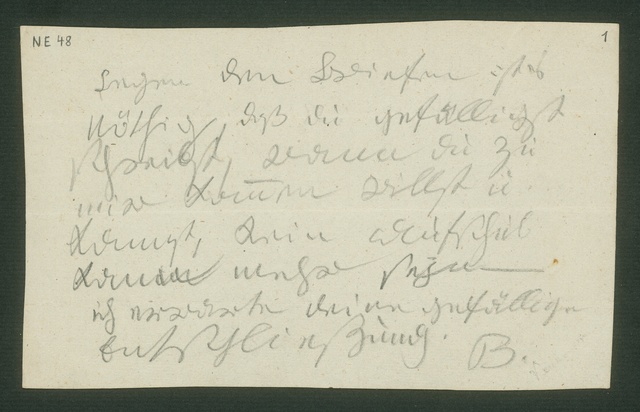 NE 48
1
Wegen den Briefen ist es
nöthig, daß du gefälligst
schreibst, wann du zu
mir kommen willst u.
kannst, kein Aufschub
kann mehr seyn
ich erwarte deine gefällige
Entschließung. B.